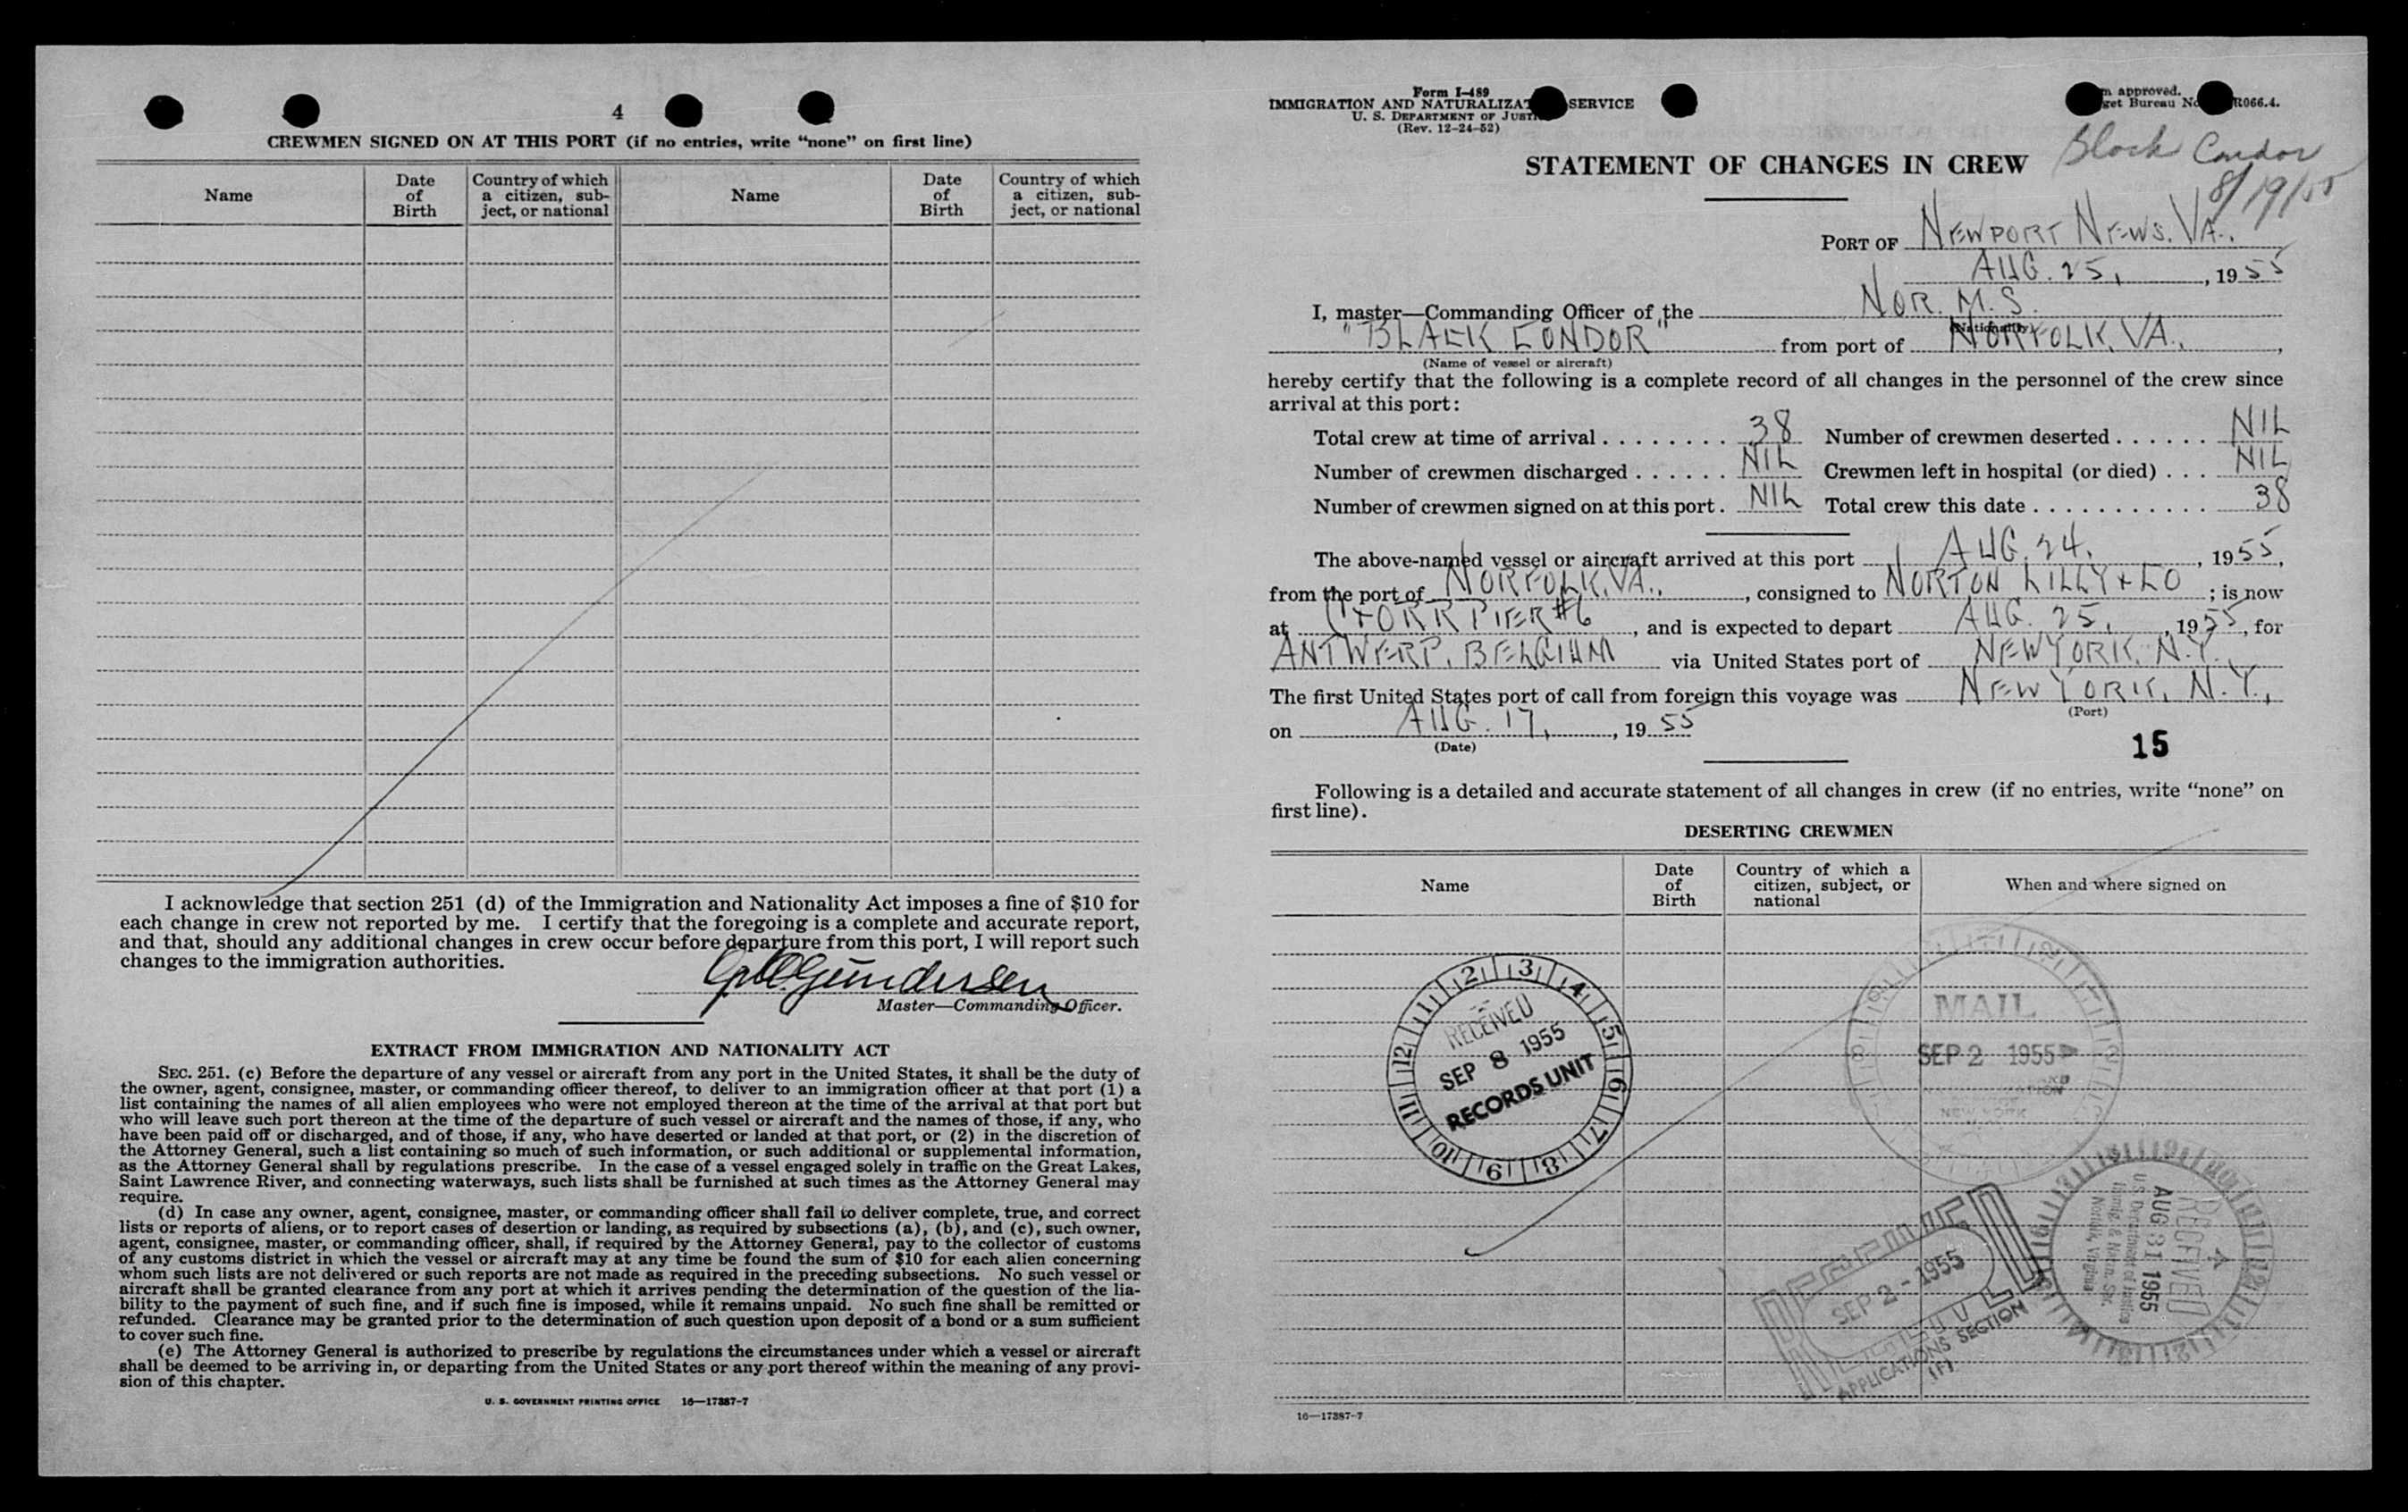 4
CREWMEN SIGNED ON AT THIS PORT (if no entries, write “none” on first line)
Name
Date of Birth
Country of which a citizen, subject, or national
Name
Date of Birth
Country of which a citizen, subject, or national
I acknowledge that section 251 (d) of the Immigration and Nationality Act imposes a fine of $10 for
each change in crew not reported by me. I certify that the foregoing is a complete and accurate report,
and that, should any additional changes in crew occur before departure from this port, I will report such
changes to the immigration authorities.
Gundersen
Master—Commanding Officer.
EXTRACT FROM IMMIGRATION AND NATIONALITY ACT
SEC. 251. (c) Before the departure of any vessel or aircraft from any port in the United States, it shall be the duty of
the owner, agent, consignee, master, or commanding officer thereof, to deliver to an immigration officer at that port (1) a
list containing the names of all alien employees who were not employed thereon at the time of the arrival at that port but
who will leave such port thereon at the time of the departure of such vessel or aircraft and the names of those, if any, who
have been paid off or discharged, and of those, if any, who have deserted or landed at that port, or (2) in the discretion of
the Attorney General, such a list containing so much of such information, or such additional or supplemental information,
as the Attorney General shall by regulations prescribe. In the case of a vessel engaged solely in traffic on the Great Lakes,
Saint Lawrence River, and connecting waterways, such lists shall be furnished at such times as the Attorney General may
require.
(d) In case any owner, agent, consignee, master, or commanding officer shall fail to deliver complete, true, and correct
lists or reports of aliens, or to report cases of desertion or landing, as required by subsections (a), (b), and (c), such owner,
agent, consignee, master, or commanding officer, shall, if required by the Attorney General, pay to the collector of customs
of any customs district in which the vessel or aircraft may at any time be found the sum of $10 for each alien concerning
whom such lists are not delivered or such reports are not made as required in the preceding subsections. No such vessel or
aircraft shall be granted clearance from any port at which it arrives pending the determination of the question of the lia-
bility to the payment of such fine, and if such fine is imposed, while it remains unpaid. No such fine shall be remitted or
refunded. Clearance may be granted prior to the determination of such question upon deposit of a bond or a sum sufficient
to cover such fine.
(e) The Attorney General is authorized to prescribe by regulations the circumstances under which a vessel or aircraft
shall be deemed to be arriving in, or departing from the United States or any port thereof within the meaning of any provi-
sion of this chapter.
U. S. GOVERNMENT PRINTING OFFICE 16—17387-7
Form I-489
IMMIGRATION AND NATURALIZAT SERVICE
U. S. DEPARTMENT OF JUST
(Rev. 12-24-52)
m approved.
get Bureau No R066.4.
Black Condor
8/19/55
STATEMENT OF CHANGES IN CREW
PORT OF NEWPORT NEWS. VA.
AUG. 25, , 1955
I, master—Commanding Officer of the NOR. M.S.
(Nationality)
"BLACK CONDOR" from port of NORFOLK, VA. ,
(Name of vessel or aircraft)
hereby certify that the following is a complete record of all changes in the personnel of the crew since
arrival at this port:
Total crew at time of arrival . . . . . . . . 38 Number of crewmen deserted . . . . . . NIL
Number of crewmen discharged . . . . . . NIL Crewmen left in hospital (or died) . . . NIL
Number of crewmen signed on at this port . NIL Total crew this date . . . . . . . . . . . 38
The above-named vessel or aircraft arrived at this port AUG. 24. , 1955,
from the port of NORFOLK, VA., , consigned to NORTON LILLY & CO ; is now
at C & O RR PIER #6 , and is expected to depart AUG. 25, , 1955, for
ANTWERP, BELGIUM via United States port of NEW YORK, N.Y.
The first United States port of call from foreign this voyage was NEW YORK, N.Y.,
(Port)
on AUG. 17, , 1955
(Date)
15
Following is a detailed and accurate statement of all changes in crew (if no entries, write “none” on
first line).
DESERTING CREWMEN
Name
Date of Birth
Country of which a citizen, subject, or national
When and where signed on
12 1 2 3 4 5 6 7 8 9 10 11
RECEIVED
SEP 8 1955
RECORDS UNIT
MAIL
SEP 2 1955
NEW YORK
RECEIVED
SEP 2 - 1955
APPLICATIONS SECTION
(F)
RECEIVED
AUG 31 1955
U.S. Department of Justice
Immig. & Natz. Ser.
Norfolk, Virginia
16—17387-7